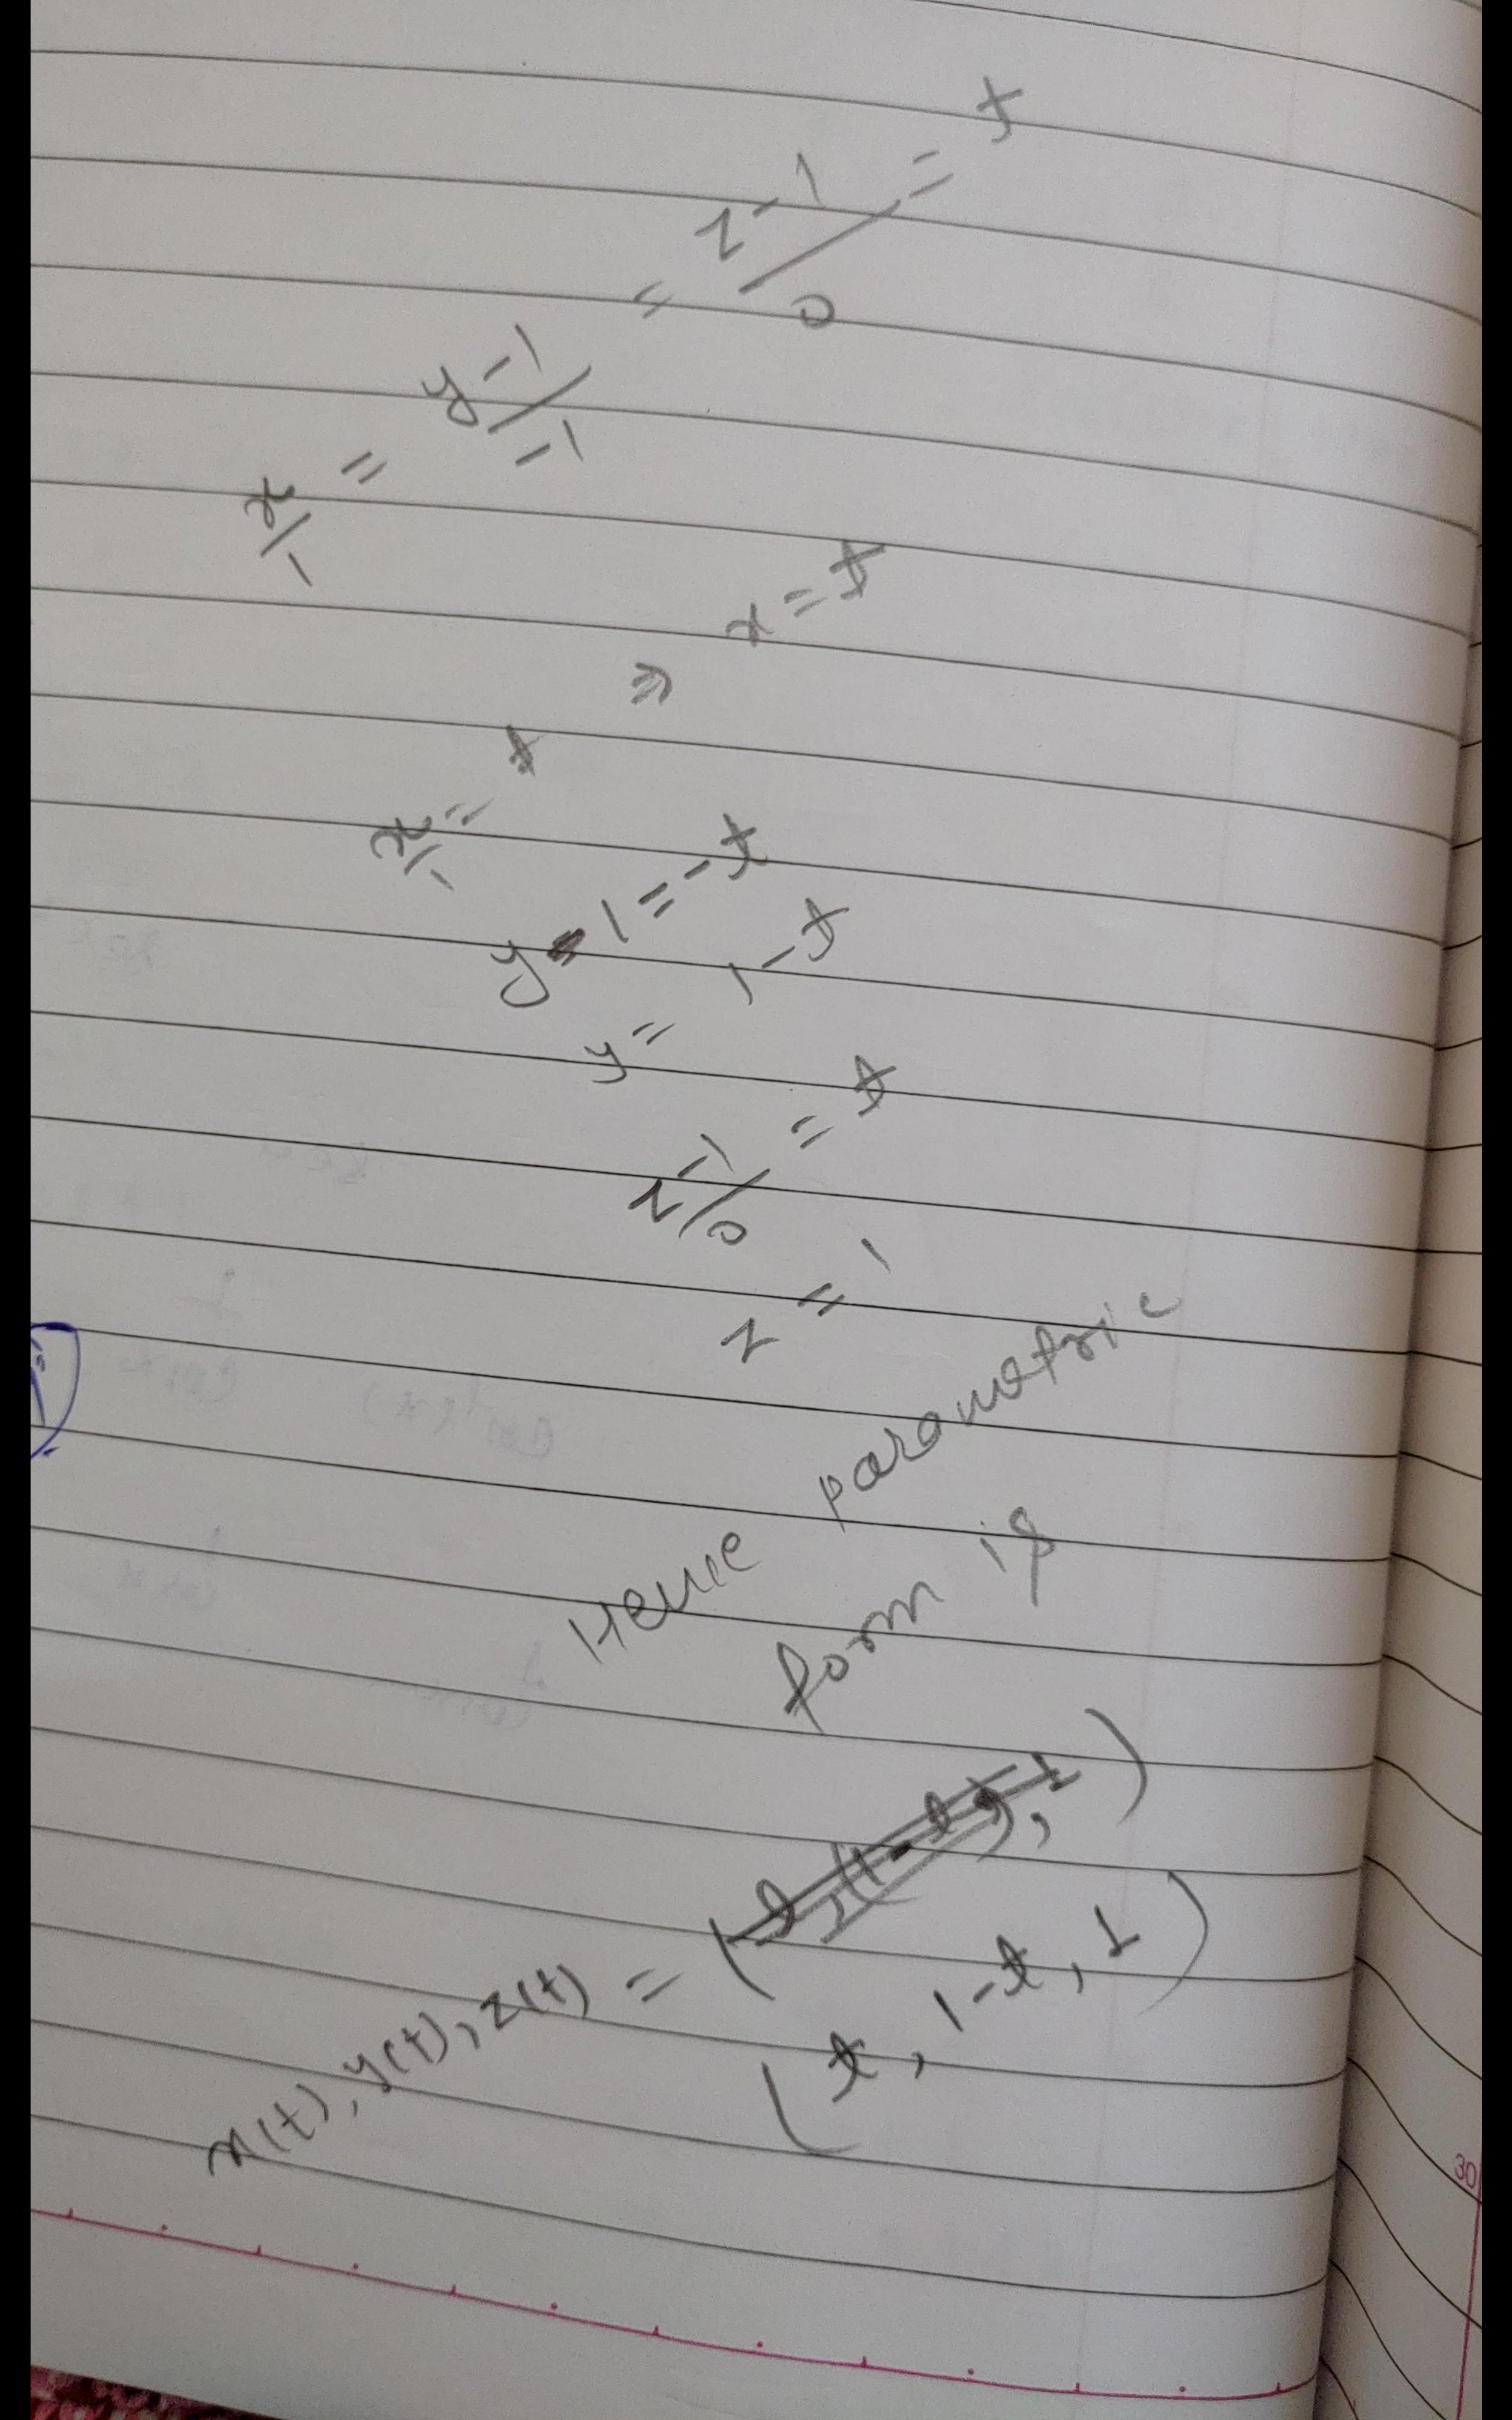 x/1 = y-1/-1 = z-1/0 = t
x/1 = t ⇒ x = t
y-1 = -t
y = 1-t
z-1/0 = t
z = 1
Hence parametric
form is
x(t), y(t), z(t) = (t, (1-t), 1)
(t, 1-t, 1)
30